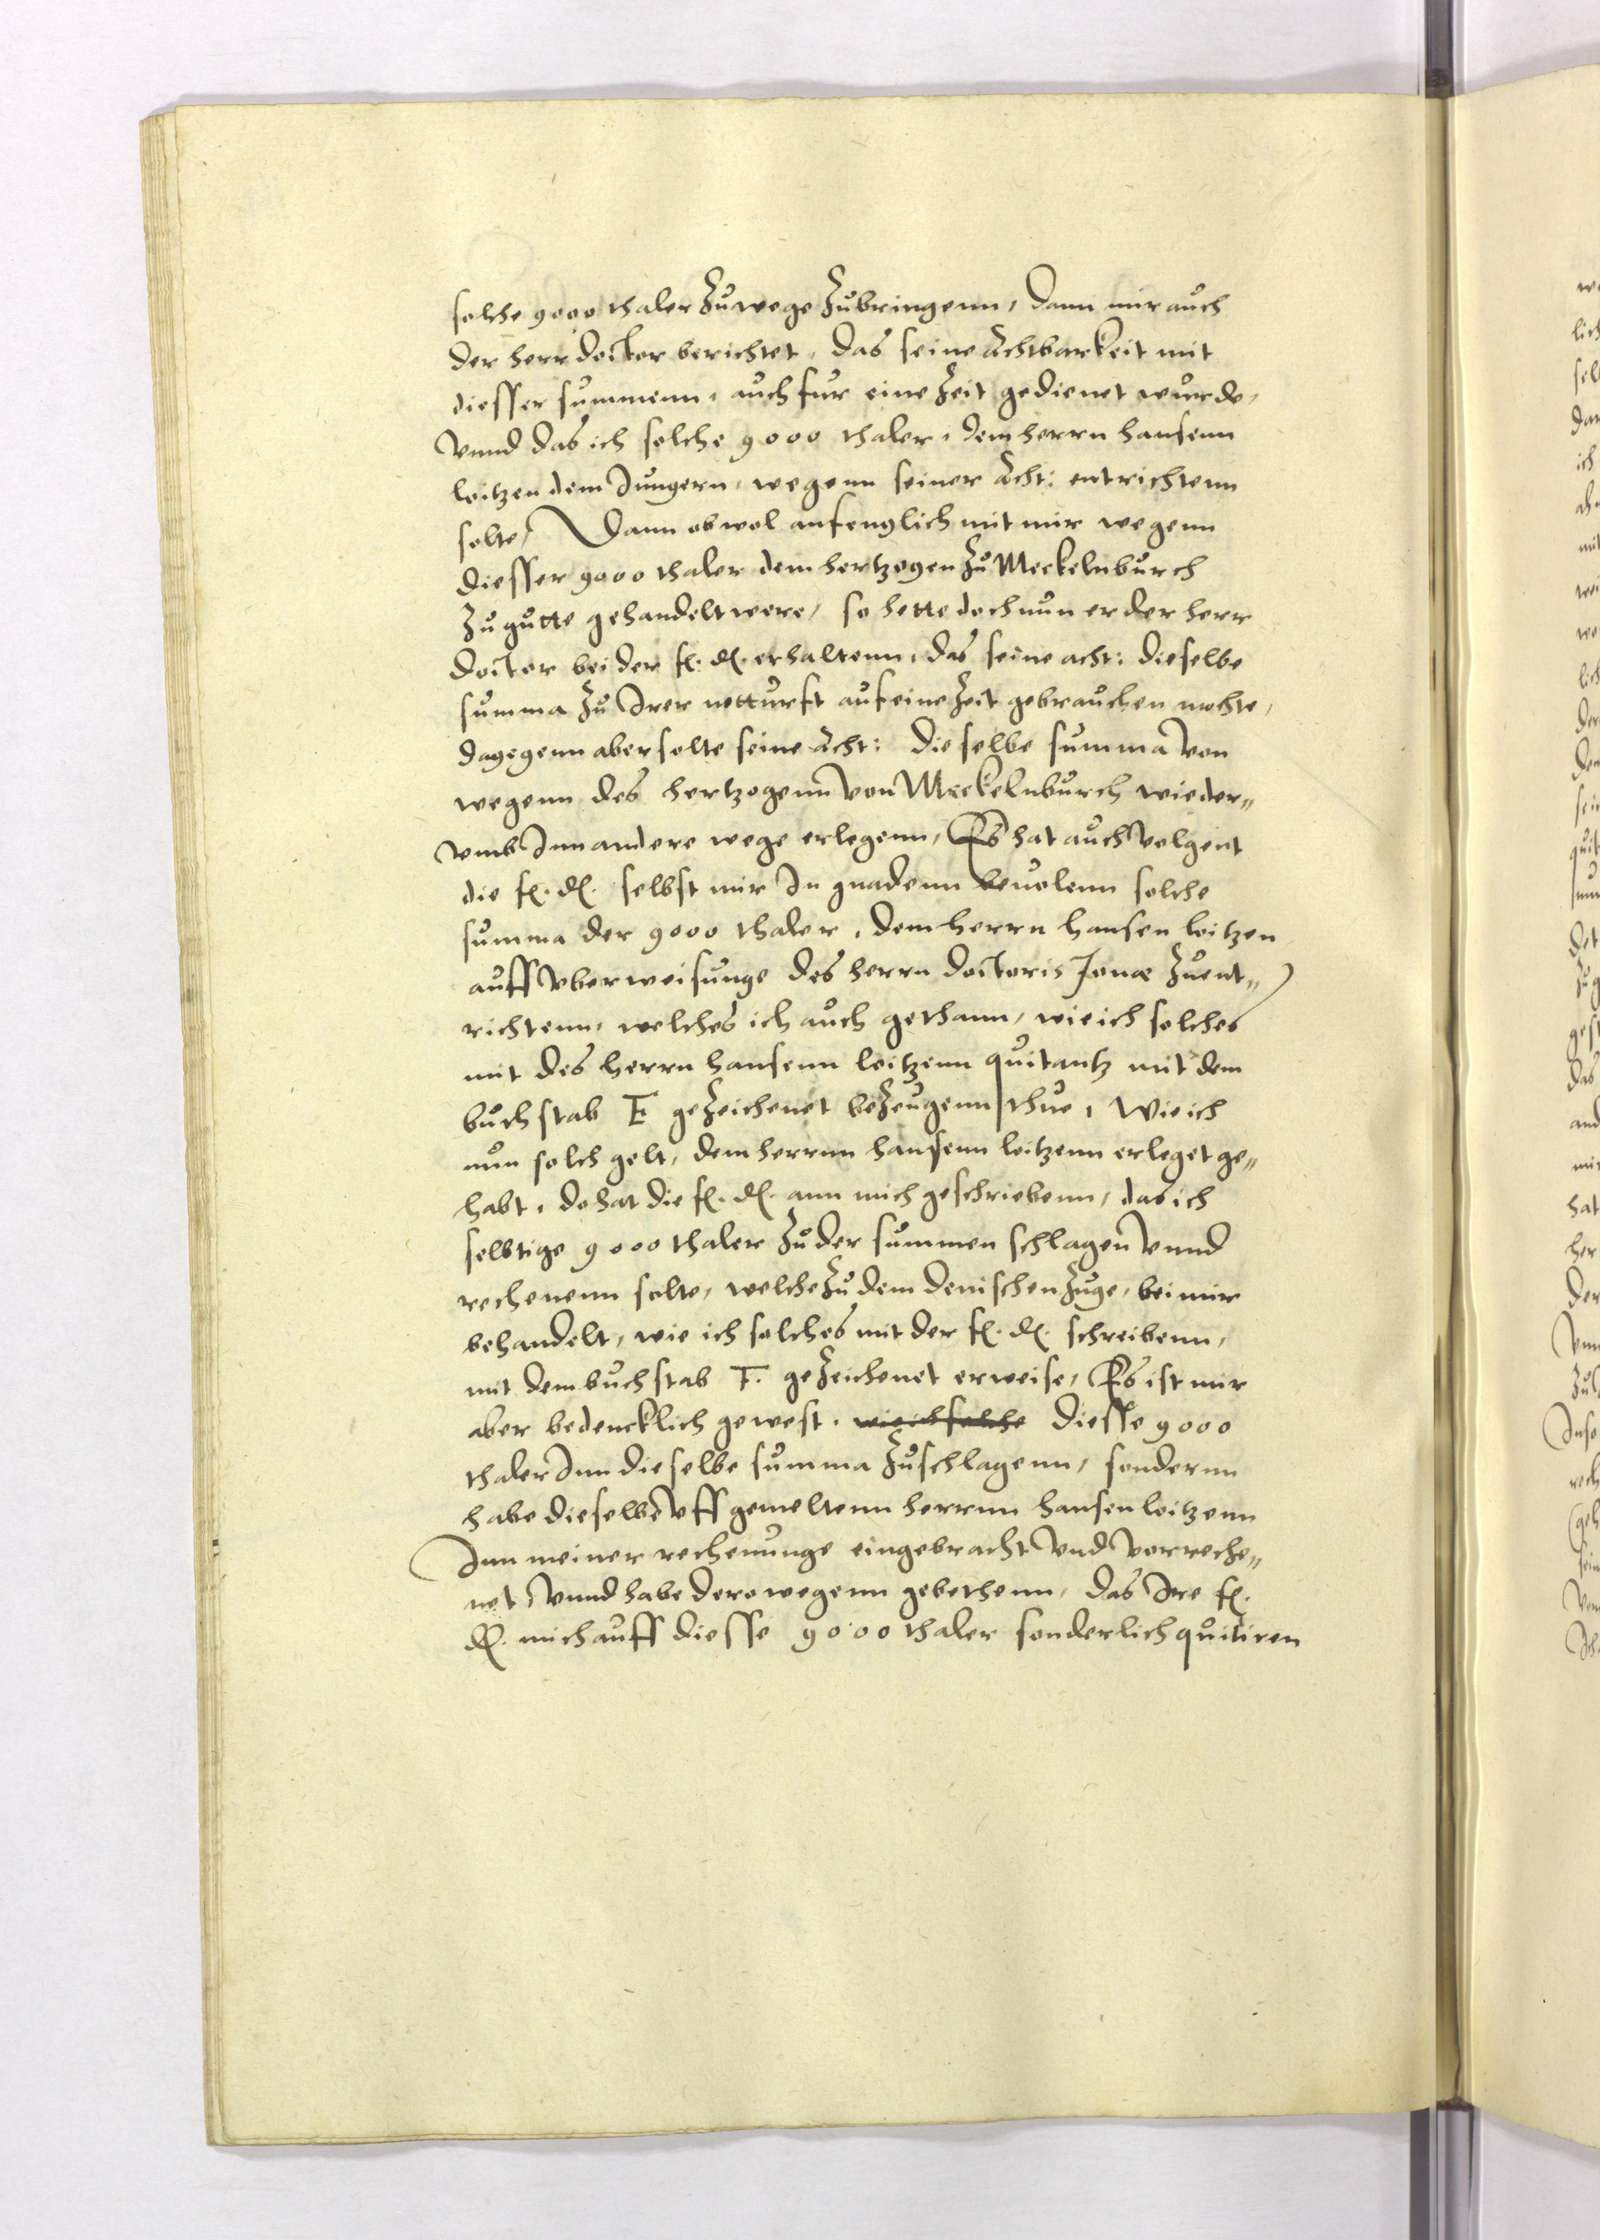 solche 9000 thaler zuwege zubringenn, dann mir auch
der herr doctor berichtet, das seine Achtbarkeit mit
diesser summenn, auch fur eine zeit gedienet wurde,
Vnnd das ich solche 9000 thaler, dem herrn hansenn
loitzen dem Jungern, wegenn seiner Acht: entrichtenn
solte, Dann obwol anfenglich mit mir wegenn
diesser 9000 thaler dem hertzogen zu Meckelnburch
zu gutte gehandelt were, so hette doch nun er der herr
doctor bei der f. d. erhaltenn, das seine acht: dieselbe
summa zu Irer notturft auf eine zeit gebrauchen mochte,
dagegenn aber solte seine Acht: dieselbe summa von
wegenn des hertzogenn von Meckelnburch wieder=
vmb Inn andere wege erlegenn, Es hat auch volgent
die f. d. selbst mir In gnadenn beuolenn solche
summa der 9000 thaler, dem herrn hansen loitzen
auff vberweisunge des herrn doctoris Jonæ zuent=
richtenn, welches ich auch gethann, wie ich solches
mit des herrn hansenn loitzenn quitantz mit dem
buchstab E gezeichenet bezeugenn thue, Wie ich
nun solch gelt, dem herrnn hansenn loitzenn erleget ge=
habt, do hat die f. d. ann mich geschriebenn, das ich
selbtige 9000 thaler zu der summen schlagen vnnd
rechenenn solte, welche zu dem denischen zuge, bei mir
behandelt, wie ich solches mit der f. d. schreibenn,
mit dem buchstab F. gezeichenet erweise, Es ist mir
aber bedencklich gewest, wie ich solche diesse 9000
thaler Inn dieselbe summa zuschlagenn, sondernn
habe dieselbe vff gemeltenn herrnn hansen loitzenn
Inn meiner rechenunge eingebracht vnd vorreche=
net vnnd habe derowegenn gebethenn, das Ire f.
d. mich auff diesse 9000 thaler sonderlich quitiren